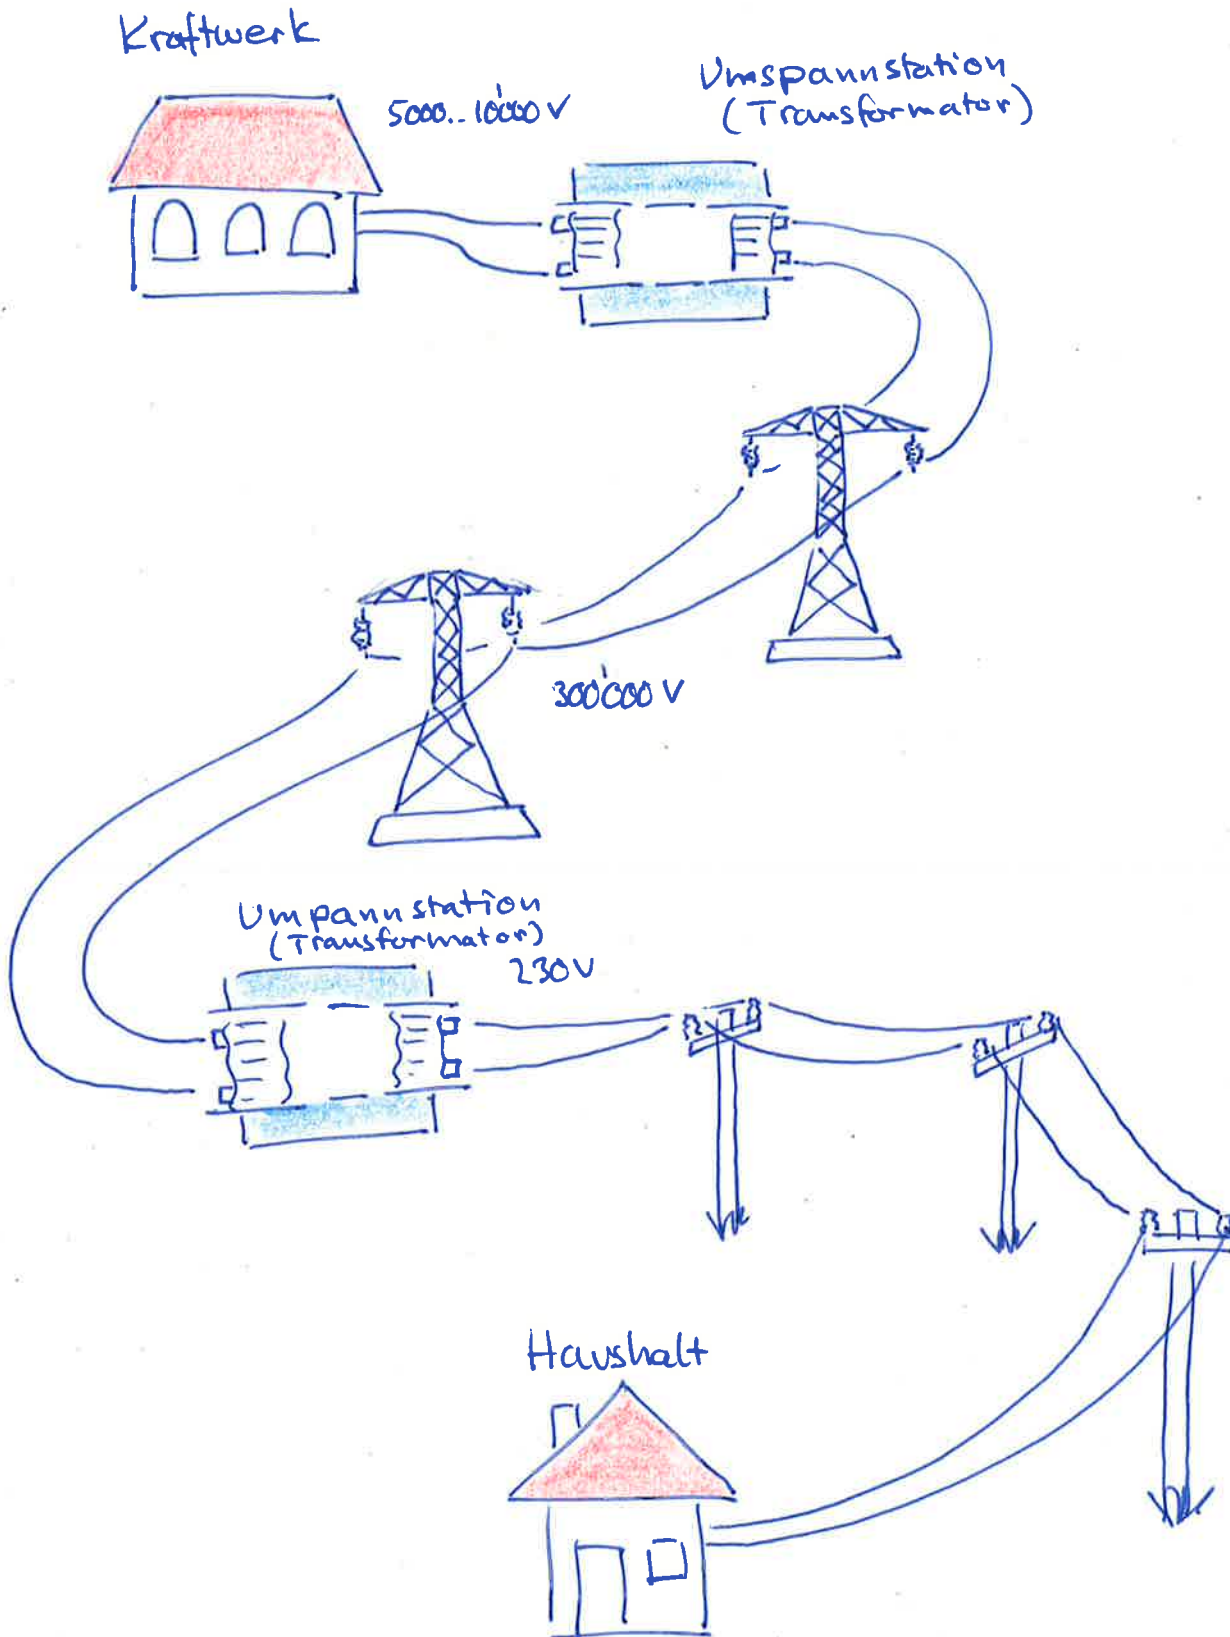 Kraftwerk
5000..10'000 V
Umspannstation
(Transformator)
300'000 V
Umpannstation
(Transformator)
230V
Haushalt